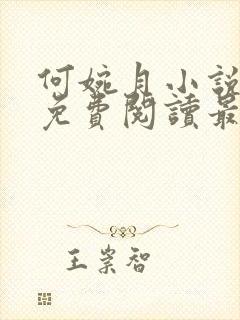 何婉月小說
免費閱讀最
王崇智